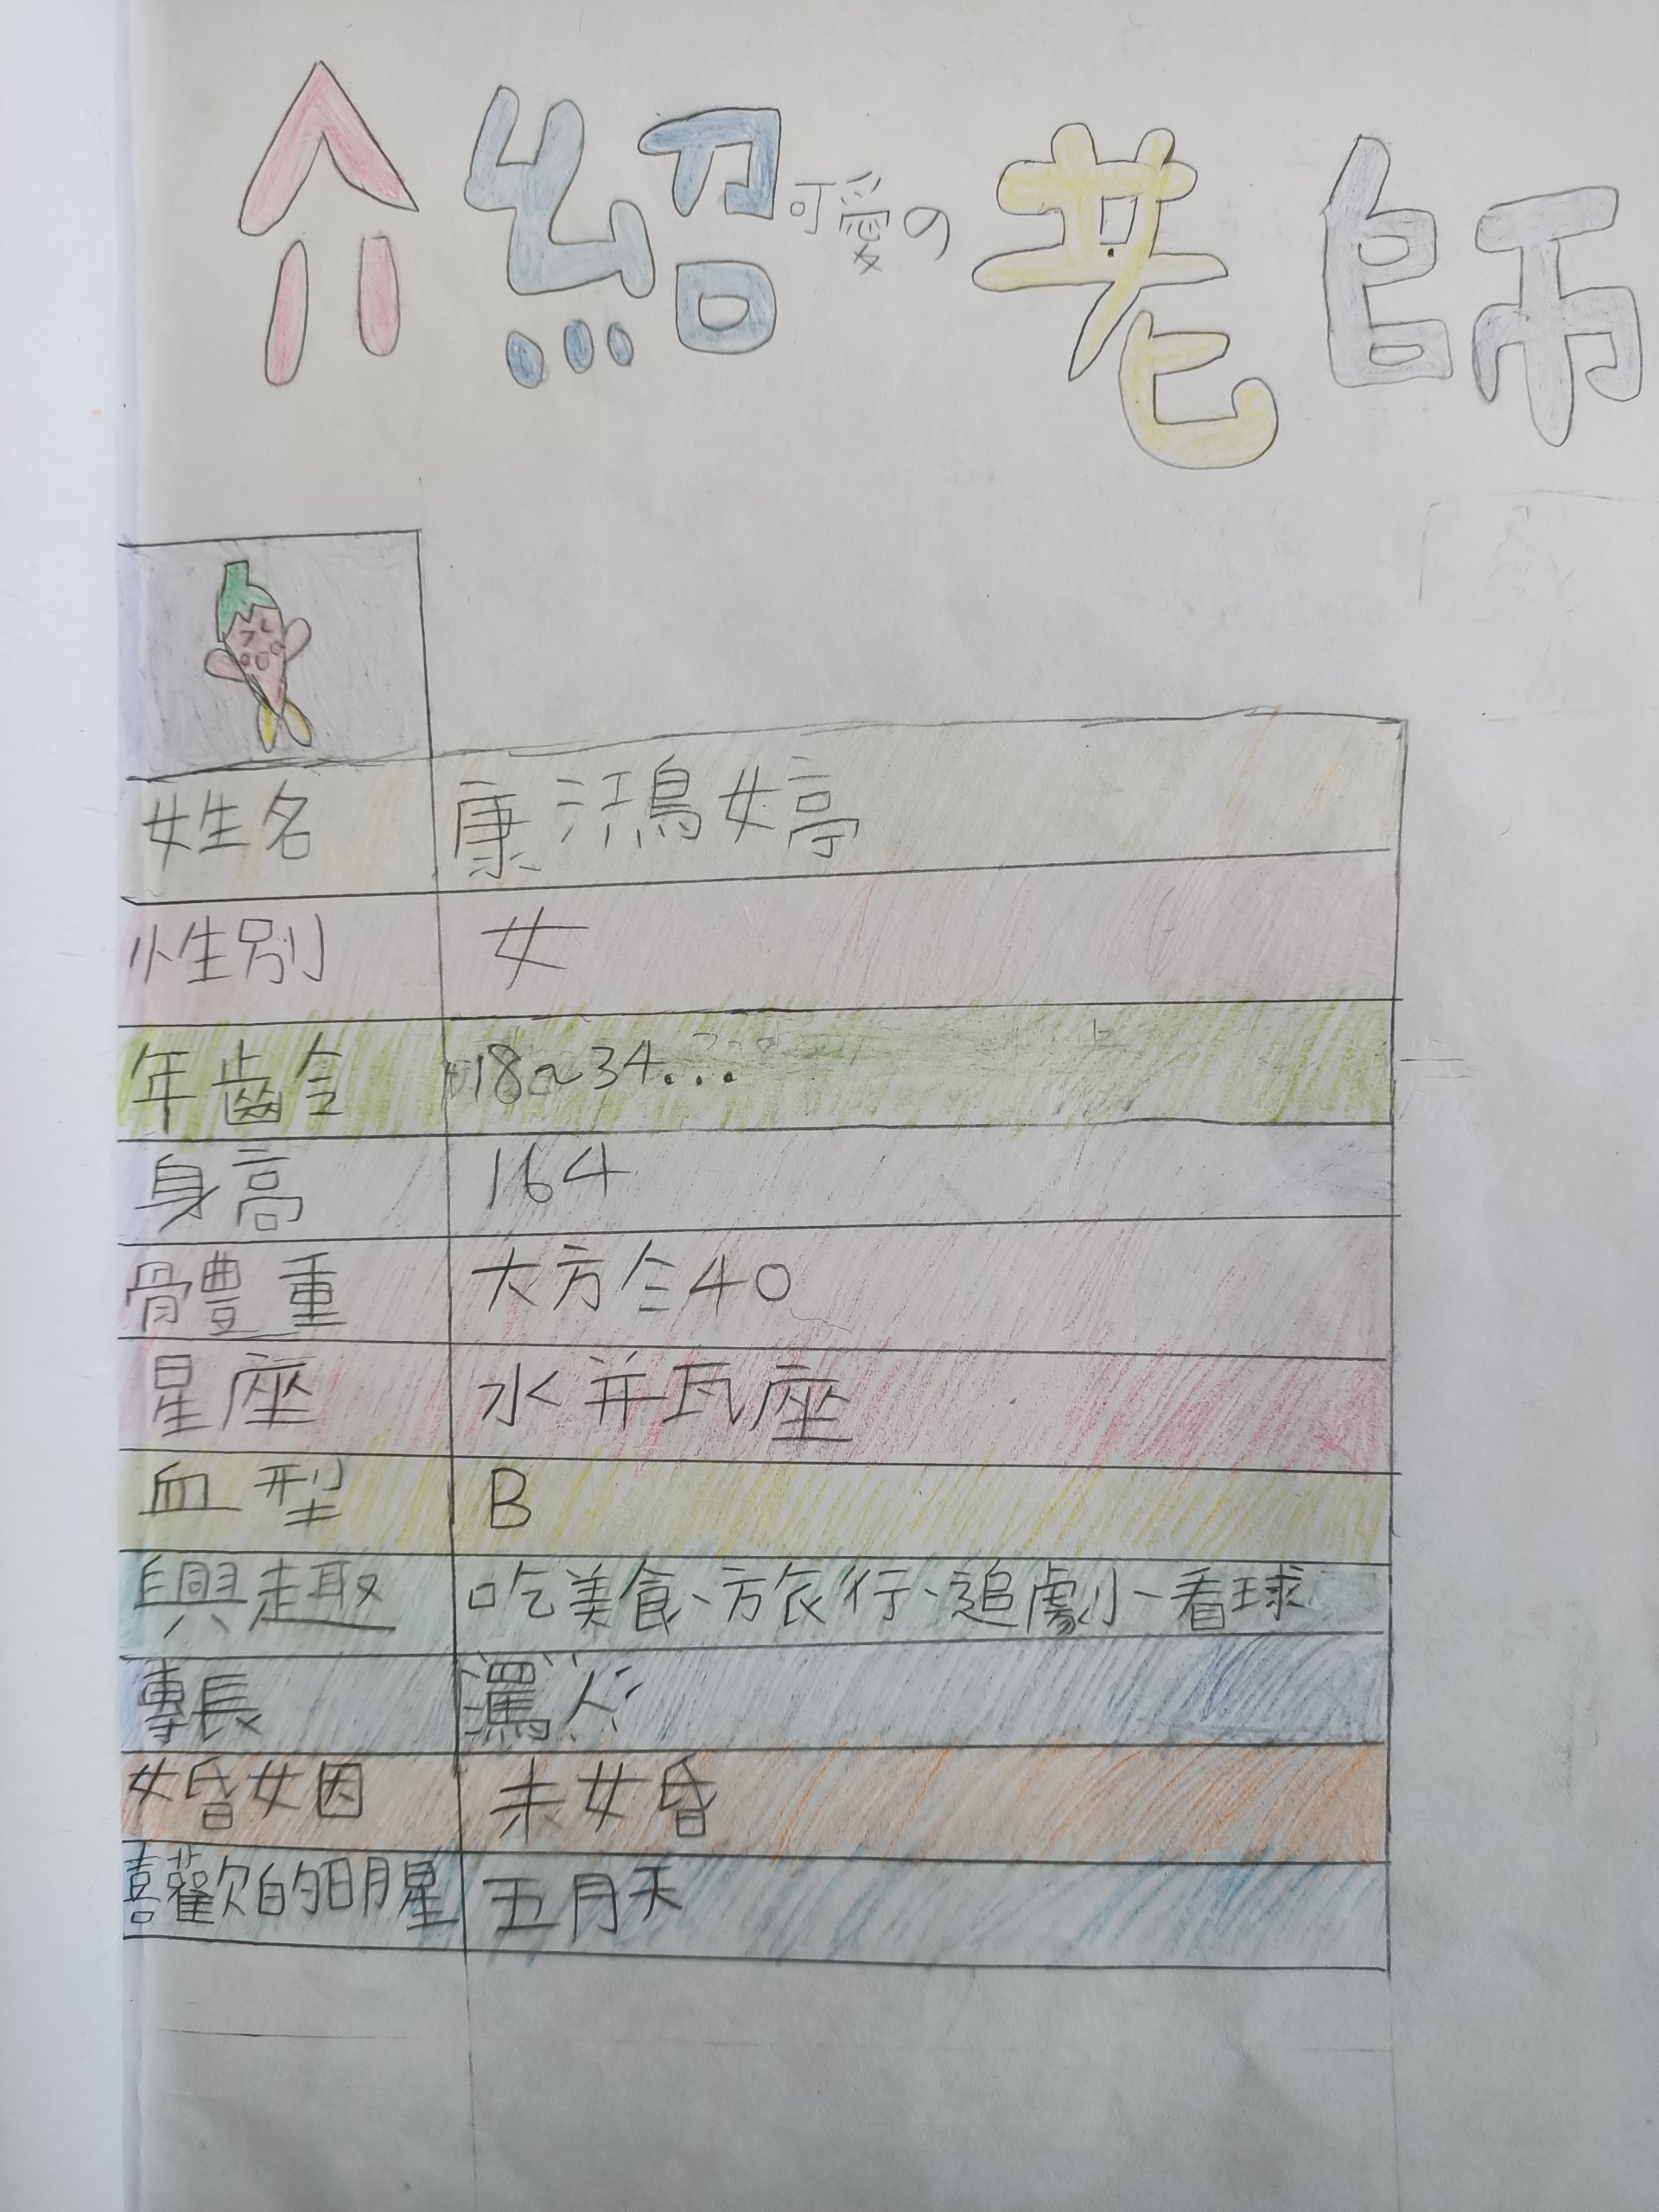 介紹可愛の老師
姓名 康鴻婷
性別 女
年齡 18~34...
身高 164
體重 大於40
星座 水瓶座
血型 B
興趣 吃美食、旅行、追劇、看球
專長 罵人
婚姻 未婚
喜歡的明星 五月天